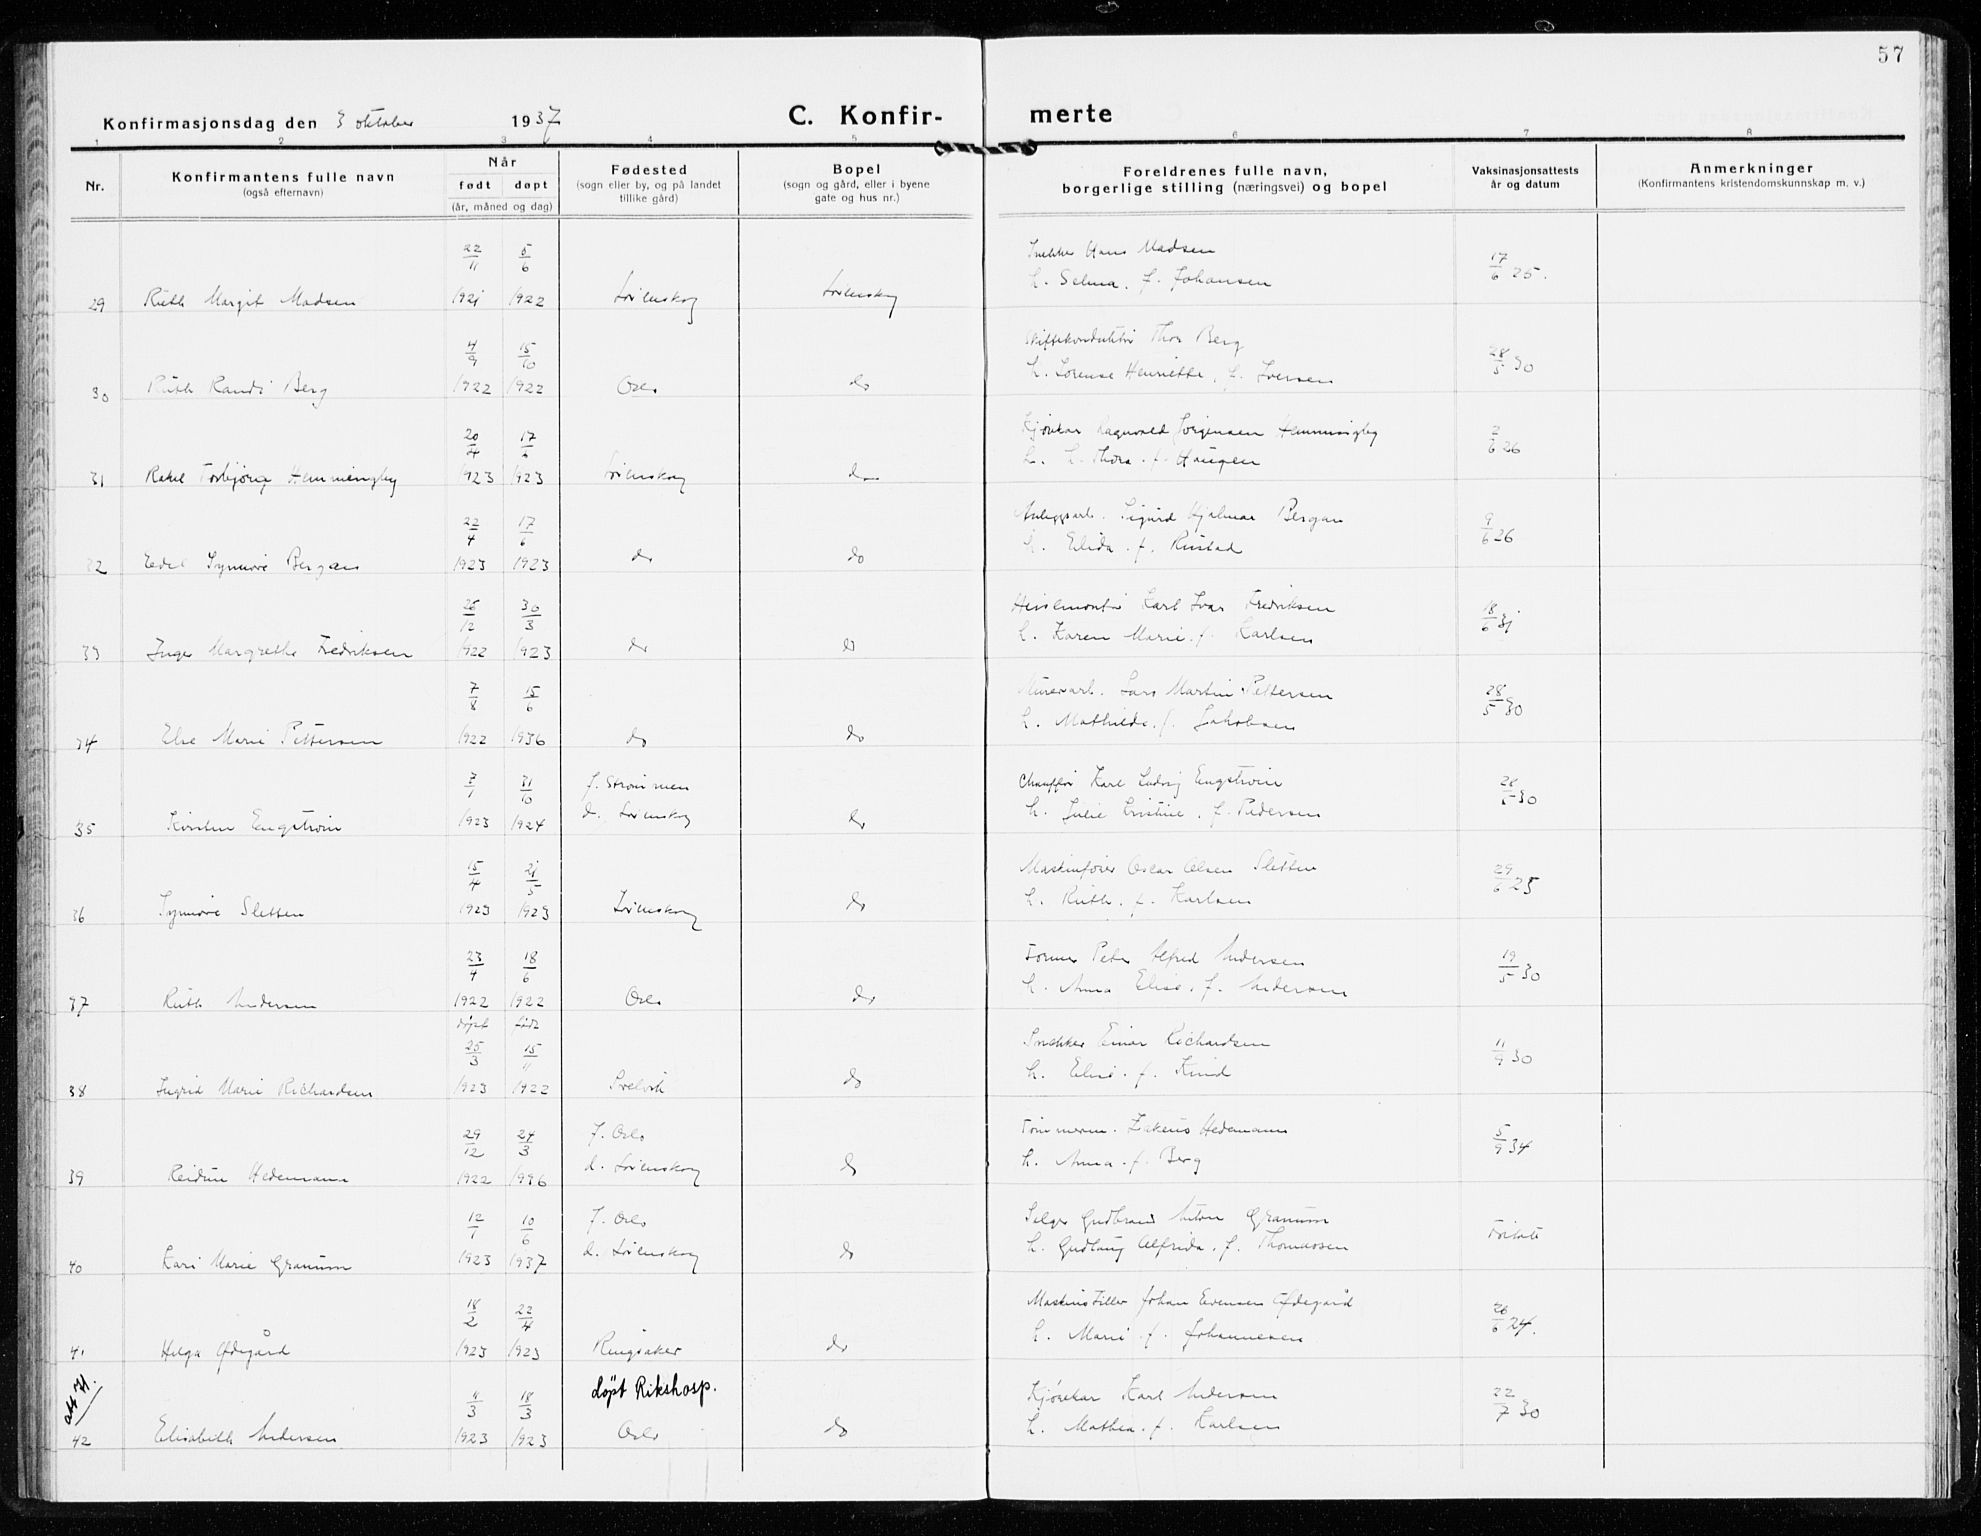 57
Konfirmasjonsdag den 3 oktober 1937 C. Konfir- merte
1 2 3 4 5 6 7 8
Nr. Konfirmantens fulle navn (også efternavn) Når født døpt (år, måned og dag) Fødested (sogn eller by, og på landet tillike gård) Bopel (sogn og gård, eller i byene gate og hus nr.) Foreldrenes fulle navn, borgerlige stilling (næringsvei) og bopel Vaksinasjonsattests år og datum Anmerkninger (Konfirmantens kristendomskunnskap m. v.)
22/11 5/6 Snekker Hans Madsen 17/6 25.
29 Ruth Margit Madsen 1921 1922 Lørenskog Lørenskog h. Selma. f. Johansen
4/9 15/10 Skiftekonduktør Thor Berg 28/5 30
30 Ruth Randi Berg 1922 1922 Oslo do h. Lorense Henriette. f. Iversen
20/4 17/6 Kjørekar Ragnvald Jørgensen Hemmingby 2/6 26
31 Rakel Torbjørg Hemmingby 1923 1923 Lørenskog do h. Thora f. Haugen
22/4 17/6 Anleggsarb. Sigurd Hjalmar Bergan 9/6 26
32 Edel Synnøve Bergan 1923 1923 do do h. Elida. f. Rustad
26/12 30/3 Heismontør Karl Ivar Fredriksen 18/6 31
33 Inger Margrethe Fredriksen 1922 1923 do do h. Karen Marie. f. Karlsen
7/8 15/6 Murerarb. Lars Martin Pettersen 28/5 30
34 Else Marie Pettersen 1922 1936 do do h. Mathilde. f. Jakobsen
7/1 31/10 f. Strømmen Chauffør Karl Ludvig Engstrøm 28/5 30
35 Kirsten Engstrøm 1923 1924 d. Lørenskog do h. Julie Kristine. f. Pedersen
15/4 21/5 Maskinfører Oscar Olsen Sletten 29/6 25
36 Synnøve Sletten 1923 1923 Lørenskog do h. Ruth. f. Karlsen
23/4 18/6 Former Peter Alfred Andersen 19/5 30
37 Ruth Andersen 1922 1922 Oslo do h. Anna Elise. f. Andersen
døpt født
25/3 15/11 Snekker Einar Richardsen 11/9 30
38 Ingrid Marie Richardsen 1923 1922 Svelvik do h. Elise. f. Kind
29/12 24/3 f. Oslo Tømmerm. Zakeus Hedemann 5/9 34
39 Reidun Hedemann 1922 1936 d. Lørenskog do h. Anna. f. Berg
12/1 10/6 f. Oslo Selger Gudbrand Anton Granum Fritatt
40 Kari Marie Granum 1923 1937 d. Lørenskog do h. Gudlaug Alfrida. f. Thomassen
18/2 22/4 Maskinstiller Johan Evensen Ødegård 26/6 24.
41 Helga Ødegård 1923 1923 Ringsaker do h. Marie f. Johannesen
att. 71. 11/3 18/3 døpt Rikshosp. Kjørekar Karl Andersen 22/7 30
42 Elisabeth Andersen 1923 1923 Oslo do h. Mathea. f. Karlsen